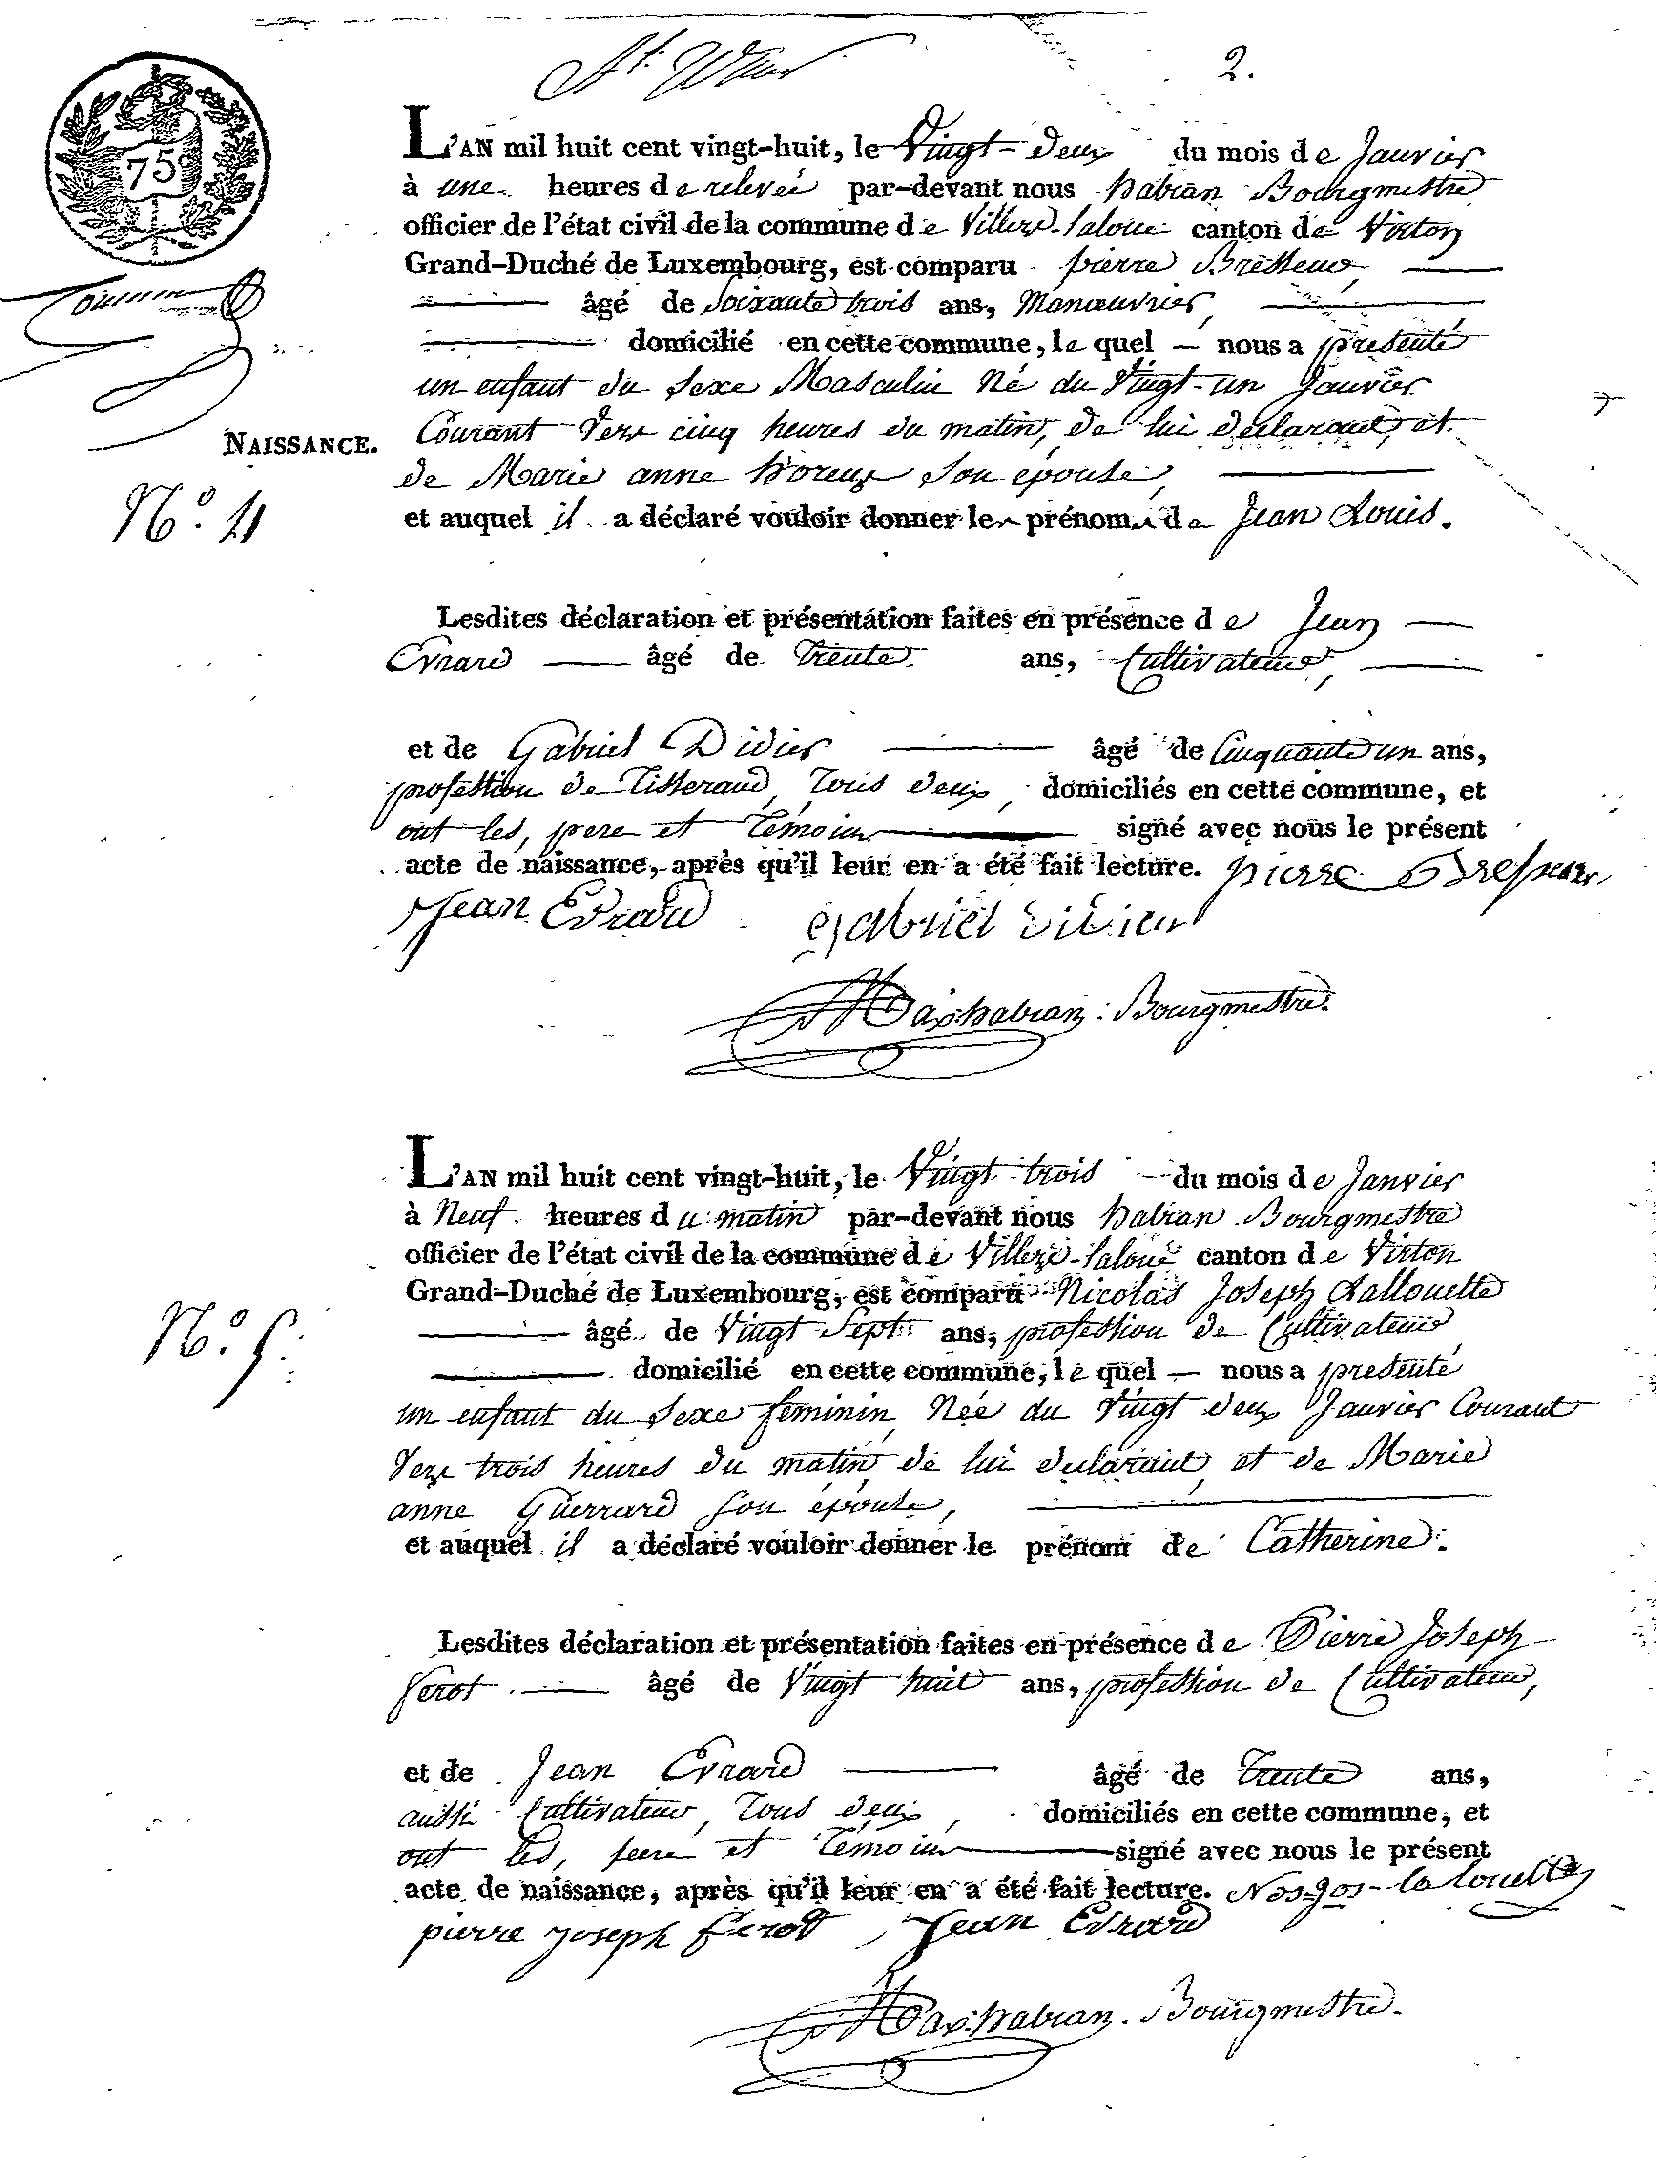 2.
75c
L'AN mil huit cent vingt-huit, le Vingt-deux du mois de Janvier
à une heures de relevée par-devant nous habran Bourgmestre
officier de l'état civil de la commune de Villers-Laloue canton de Virton
Grand-Duché de Luxembourg, est comparu pierre Bresseur,
âgé de Soixante trois ans, Manœuvrier,
domicilié en cette commune, le quel nous a presenté
un enfant du Sexe Masculin Né du Vingt-un Janvier
Courant Vers cinq heures du matin, de lui declarant, et
NAISSANCE.
de Marie anne Son épouse,
et auquel il a déclaré vouloir donner le prénom de Jean Louis.
No. 4
Lesdites déclaration et présentation faites en présence de Jean
Evrard âgé de Trente ans, Cultivateur,
et de Gabriel Didier âgé de Cinquante un ans,
profession de Tisserand, Tous deux, domiciliés en cette commune, et
ont les, pere et Témoins signé avec nous le présent
acte de naissance, après qu'il leur en a été fait lecture. pierre Bresseur
Jean Evrard Gabriel Didier
Max habran : Bourgmestre.
L'AN mil huit cent vingt-huit, le Vingt trois du mois de Janvier
à Neuf heures du matin par-devant nous habran Bourgmestre
officier de l'état civil de la commune de Villers-Laloue canton de Virton
Grand-Duché de Luxembourg, est comparu Nicolas Joseph Lallouette
No. 5.
âgé de Vingt Sept ans, profession de Cultivateur
domicilié en cette commune, le quel nous a presenté
un enfant du Sexe féminin, Née du Vingt deux Janvier Courant
Vers trois heures du matin, de lui declarant, et de Marie
anne Guerrard Son épouse,
et auquel il a déclaré vouloir donner le prénom de Catherine.
Lesdites déclaration et présentation faites en présence de Pierre Joseph
ferot âgé de Vingt huit ans, profession de Cultivateur,
et de Jean Evrard âgé de Trente ans,
aussi Cultivateur, Tous deux, domiciliés en cette commune, et
ont les, pere et Témoins signé avec nous le présent
acte de naissance, après qu'il leur en a été fait lecture. Nos Jos lalouette
pierre joseph ferot, Jean Evrard
Max habran. Bourgmestre.